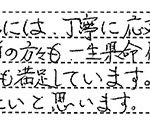 には 丁寧に応
の方々も一生懸命
も満足しています。
たいと思います。